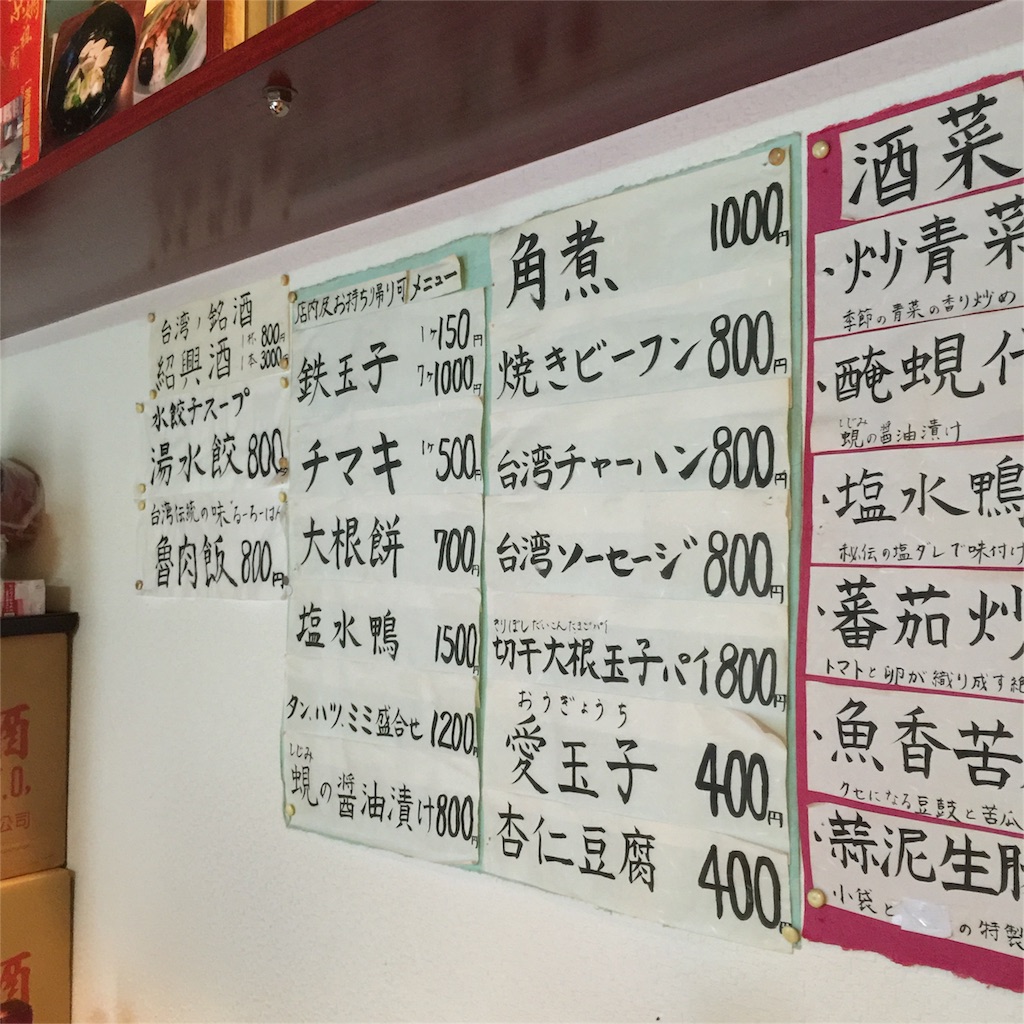 台湾ノ銘酒
紹興酒 1杯800円 1本3000円
水餃子スープ
湯水餃 800円
台湾伝統の味"るーろーはん
魯肉飯 800円
店内及お持ち帰り可メニュー
鉄玉子 1ヶ150円 7ヶ1000円
チマキ 1ヶ500円
大根餅 700円
塩水鴨 1500円
タン、ハツ、ミミ盛合せ 1200円
しじみ
蜆の醤油漬け800円
角煮 1000円
焼きビーフン800円
台湾チャーハン800円
台湾ソーセージ800円
きりぼしだいこんたまごパイ
切干大根玉子パイ800円
おうぎょうち
愛玉子 400円
杏仁豆腐 400円
酒菜
・炒青菜
季節の青菜の香り炒め
・醃蜆
しじみ
蜆の醤油漬け
・塩水鴨
秘伝の塩ダレで味付け
・蕃茄炒
トマトと卵が織り成す絶
・魚香苦
クセになる豆鼓と苦瓜
・蒜泥生腸
小袋と の特製
酒
.O,
公司
酒